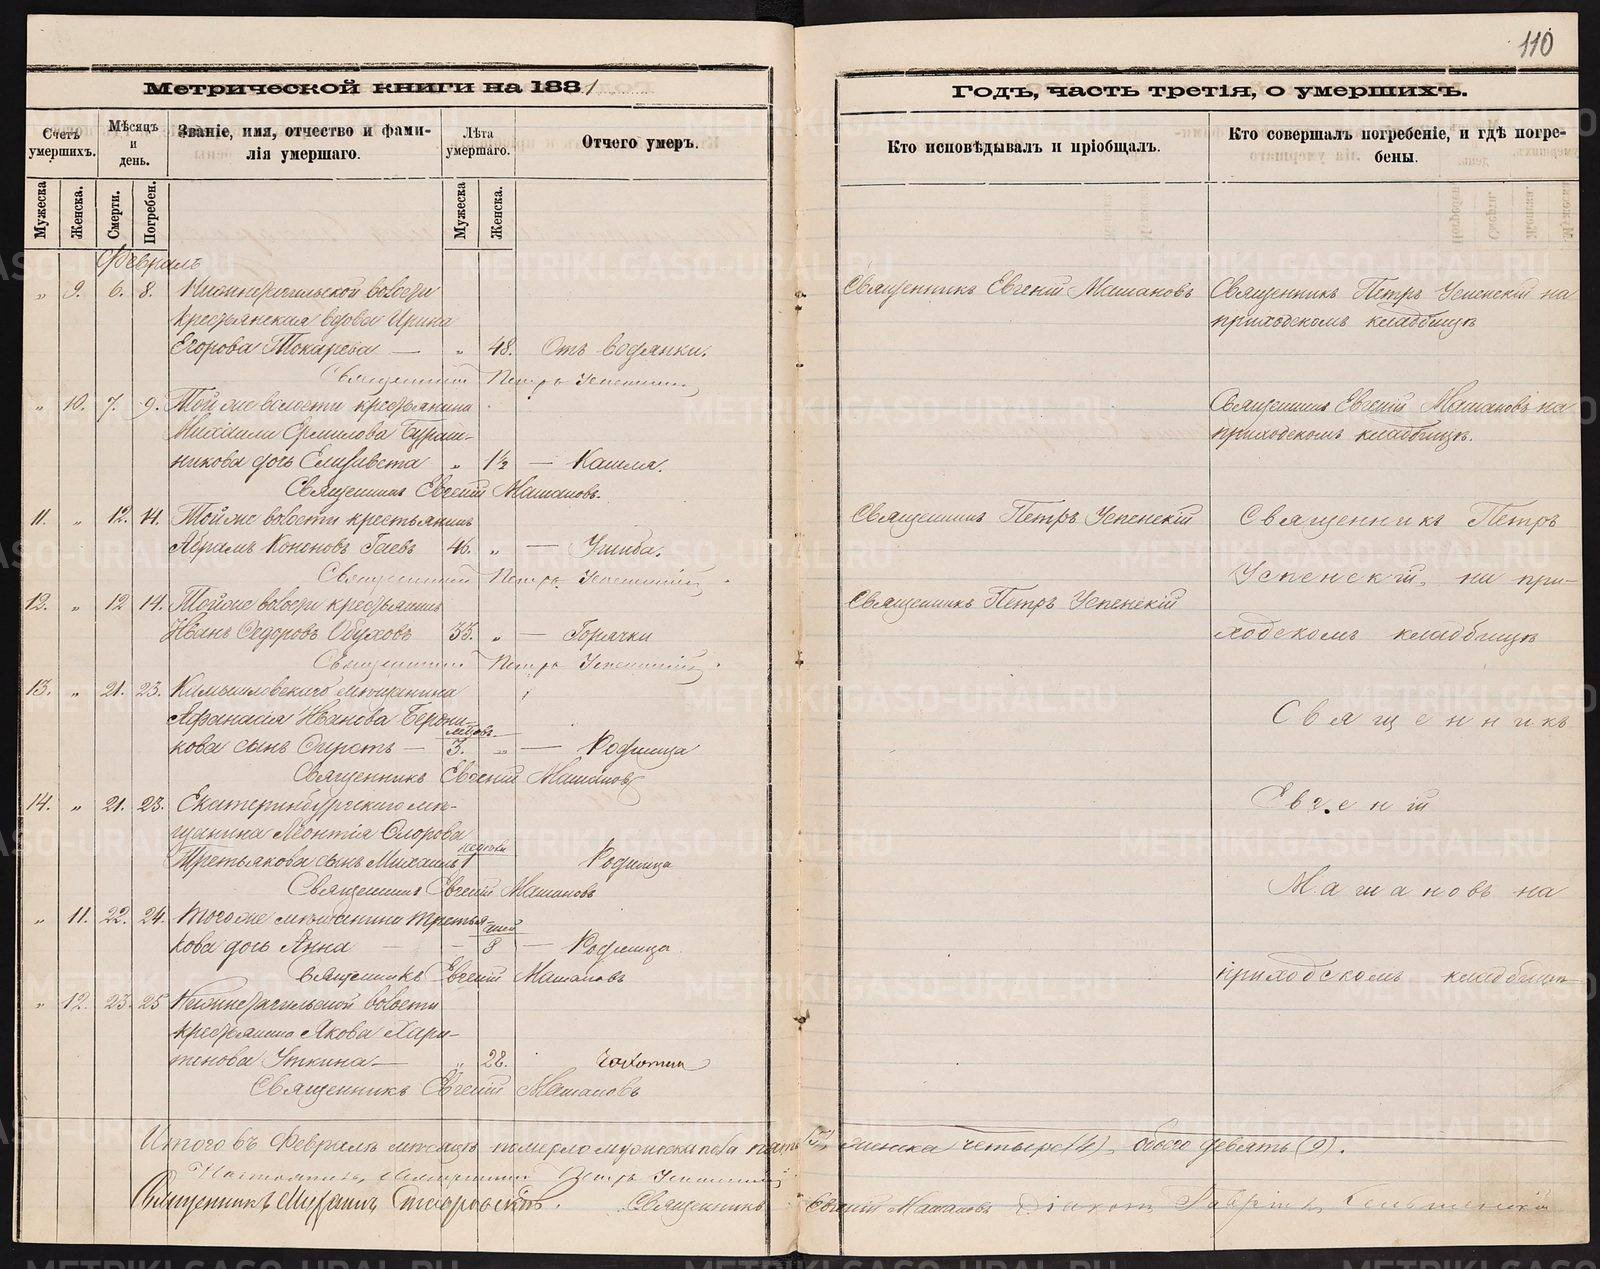 110
Метрической книги на 1881
Счетъ умершихъ.
Мѣсяцъ и день.
Званіе, имя, отчество и фами-
лія умершаго.
Лѣта умершаго.
Отчего умеръ.
Мужеска
Женска.
Смерти.
Погребен.
Мужеска
Женска.
Февраль
„ 9. 6. 8. Нижнетагильской волости
крестьянская вдова Ирина
Егорова Токарева — „ 48. Отъ водянки.
Священникъ Петръ Успенскій
„ 10. 7. 9. Той же волости крестьянина
Михаила
никова дочь Елизавета „ 1½ — Кашля.
Священникъ Евгеній Машановъ.
11. „ 12. 14. Той же волости крестьянинъ
Абрамъ Кононовъ Гаевъ 46. „ — Ушиба.
Священникъ Петръ Успенскій
12. „ 12 14. Той же волости крестьянинъ
Иванъ Федоровъ Обуховъ 35. „ — Горячки
Священникъ Петръ Успенскій
13. „ 21. 23. Камышловскаго мѣщанина
Афанасія Иванова
кова сынъ — 3. „ — Родимца
Священникъ Евгеній Машановъ
14. „ 21. 23. Екатеринбургскаго мѣ-
щанина Леонтія
Третьякова сынъ Михаилъ 1 Родимца
Священникъ Евгеній Машановъ
„ 11. 22. 24. Того же мѣщанина Третья-
дней
кова дочь Анна — — 8 — Родимца
Священникъ Евгеній Машановъ
„ 12. 23. 25 Нижнетагильской волости
крестьянина Якова Хари-
тонова Уткина — „ 28. Чахотки
Священникъ Евгеній Машановъ
Годъ, часть третія, о умершихъ.
Кто исповѣдывалъ и пріобщалъ.
Кто совершалъ погребеніе, и гдѣ погре-
бены.
Священникъ Евгеній Машановъ Священникъ Петръ Успенскій на
приходскомъ кладбищѣ
Священникъ Евгеній Машановъ на
приходскомъ кладбищѣ.
Священникъ Петръ Успенскій Священникъ Петръ
Успенскій, на при-
Священникъ Петръ Успенскій
ходскомъ кладбищѣ
Священникъ
Евгеній
Машановъ на
приходскомъ кладбищѣ
Итого въ Февралѣ мѣсяцѣ померло мужеска пола пять (5), женска четыре (4), обоего девять (9).
Священникъ Петръ Успенскій
Священникъ Священникъ Евгеній Машановъ Діаконъ Гавріилъ
METRIKI.GASO-URAL.RU